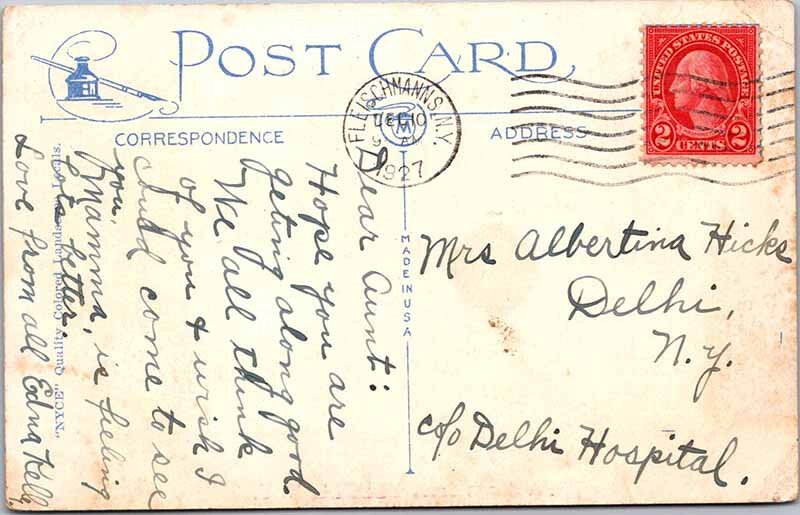 POST CARD
CORRESPONDENCE
ADDRESS
FLEISCHMANNS. N.Y.
DEC 10
9 AM
1927
UNITED STATES POSTAGE
2 CENTS 2
MADE IN USA
Dear Aunt:
Hope you are
geting along good
We all think
of you & wish I
could come to see
you.
Mamma, is feeling
lots better.
Love from all Edna Kelly
Mrs Albertina Hicks
Delhi,
N.Y.
c/o Delhi Hospital.
"NYCE" Quality Colored Landscape Locals.